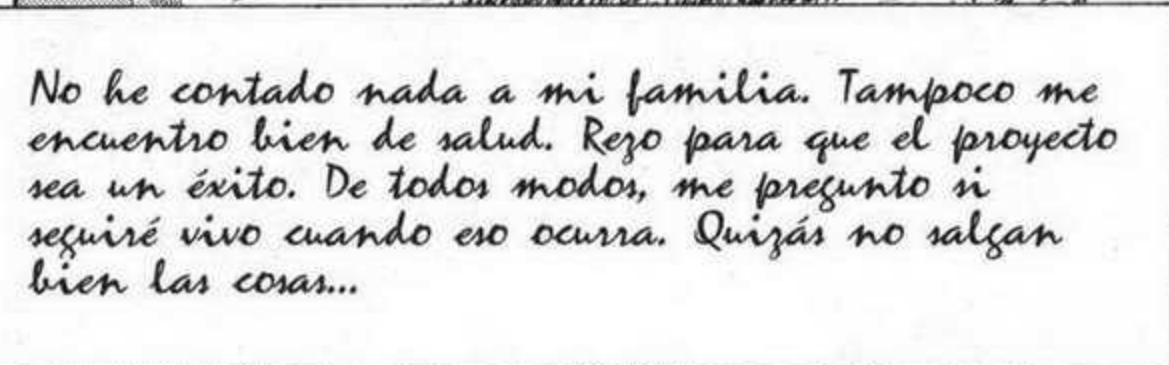 No he contado nada a mi familia. Tampoco me
encuentro bien de salud. Rezo para que el proyecto
sea un éxito. De todos modos, me pregunto si
seguiré vivo cuando eso ocurra. Quizás no salgan
bien las cosas...